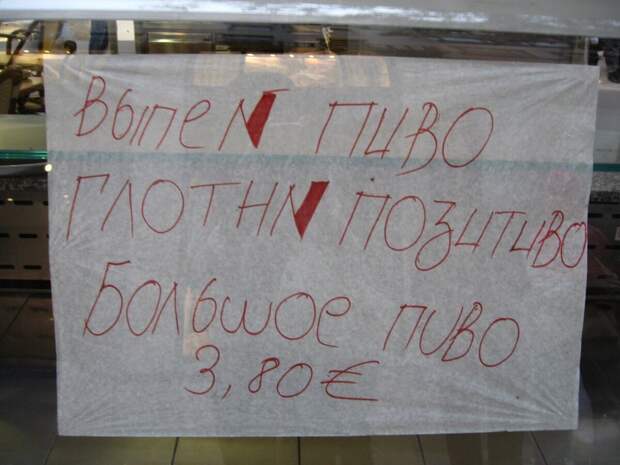 ВыпеN ПИВО
ГЛОТНN ПОЗИТИВО
Большое пиво
3,80€